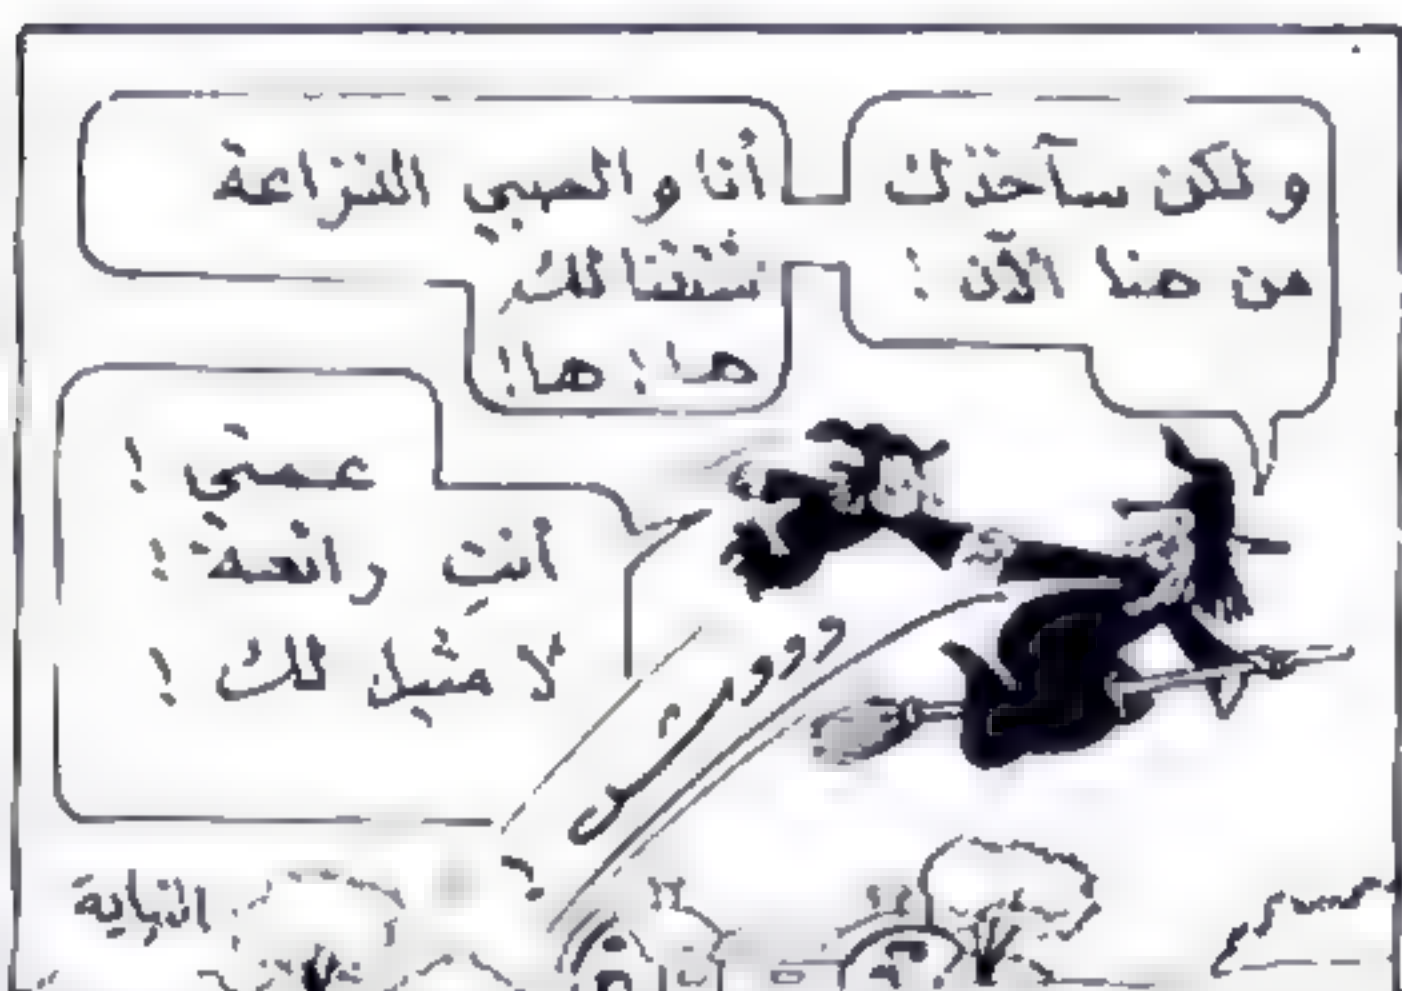 ولكن سآخذك
من هنا الآن !
أنا والصبي النزاعة
شتتنا لك
ها ! ها !
عمتي !
أنتِ رائعة !
لا مثيل لك !
ووو ش !
النهاية